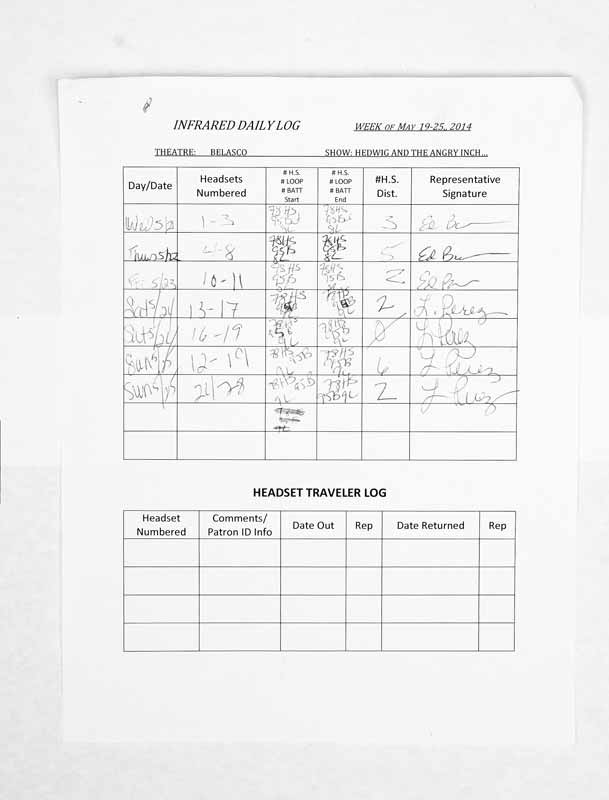 INFRARED DAILY LOG WEEK OF MAY 19-25, 2014
THEATRE: BELASCO SHOW: HEDWIG AND THE ANGRY INCH...
Day/Date Headsets Numbered # H.S. # LOOP # BATT Start # H.S. # LOOP # BATT End #H.S. Dist. Representative Signature
1-3 78HS 78HS 3
Thurs 5/22 4-8 78HS 95B 78HS 95B 5
Fri 5/23 10-11 78HS 95B 78HS 95B 2
Sat 5/24 13-17 78HS 78HS 2 L. Perez
Sat 5/24 16-19 78HS 78HS 0 L Perez
Sun 5/25 12-19 78HS 95B 78HS 95B 6 L Perez
Sun 5/25 78HS 95B 9L 78HS 95B 9L 2 L Perez
HEADSET TRAVELER LOG
Headset Numbered Comments/ Patron ID Info Date Out Rep Date Returned Rep